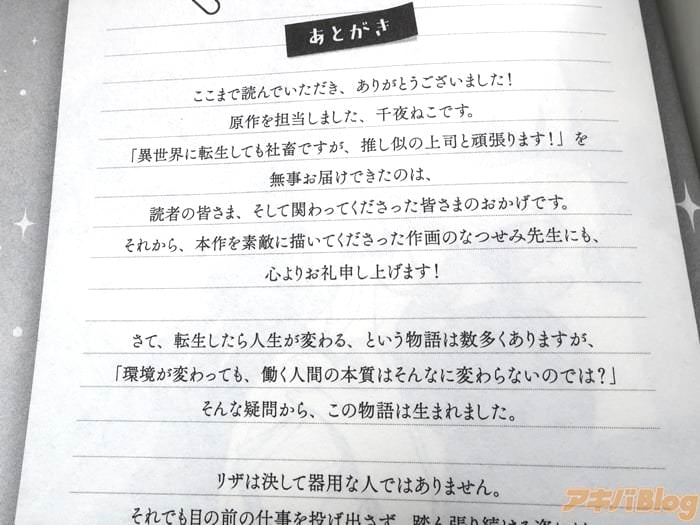 あとがき
ここまで読んでいただき、ありがとうございました！
原作を担当しました、千夜ねこです。
「異世界に転生しても社畜ですが、推し似の上司と頑張ります！」を
無事お届けできたのは、
読者の皆さま、そして関わってくださった皆さまのおかげです。
それから、本作を素敵に描いてくださった作画のなつせみ先生にも、
心よりお礼申し上げます！
さて、転生したら人生が変わる、という物語は数多くありますが、
「環境が変わっても、働く人間の本質はそんなに変わらないのでは？」
そんな疑問から、この物語は生まれました。
リザは決して器用な人ではありません。
それでも目の前の仕事を投げ出さず、踏ん張り続ける姿に
アキバBlog